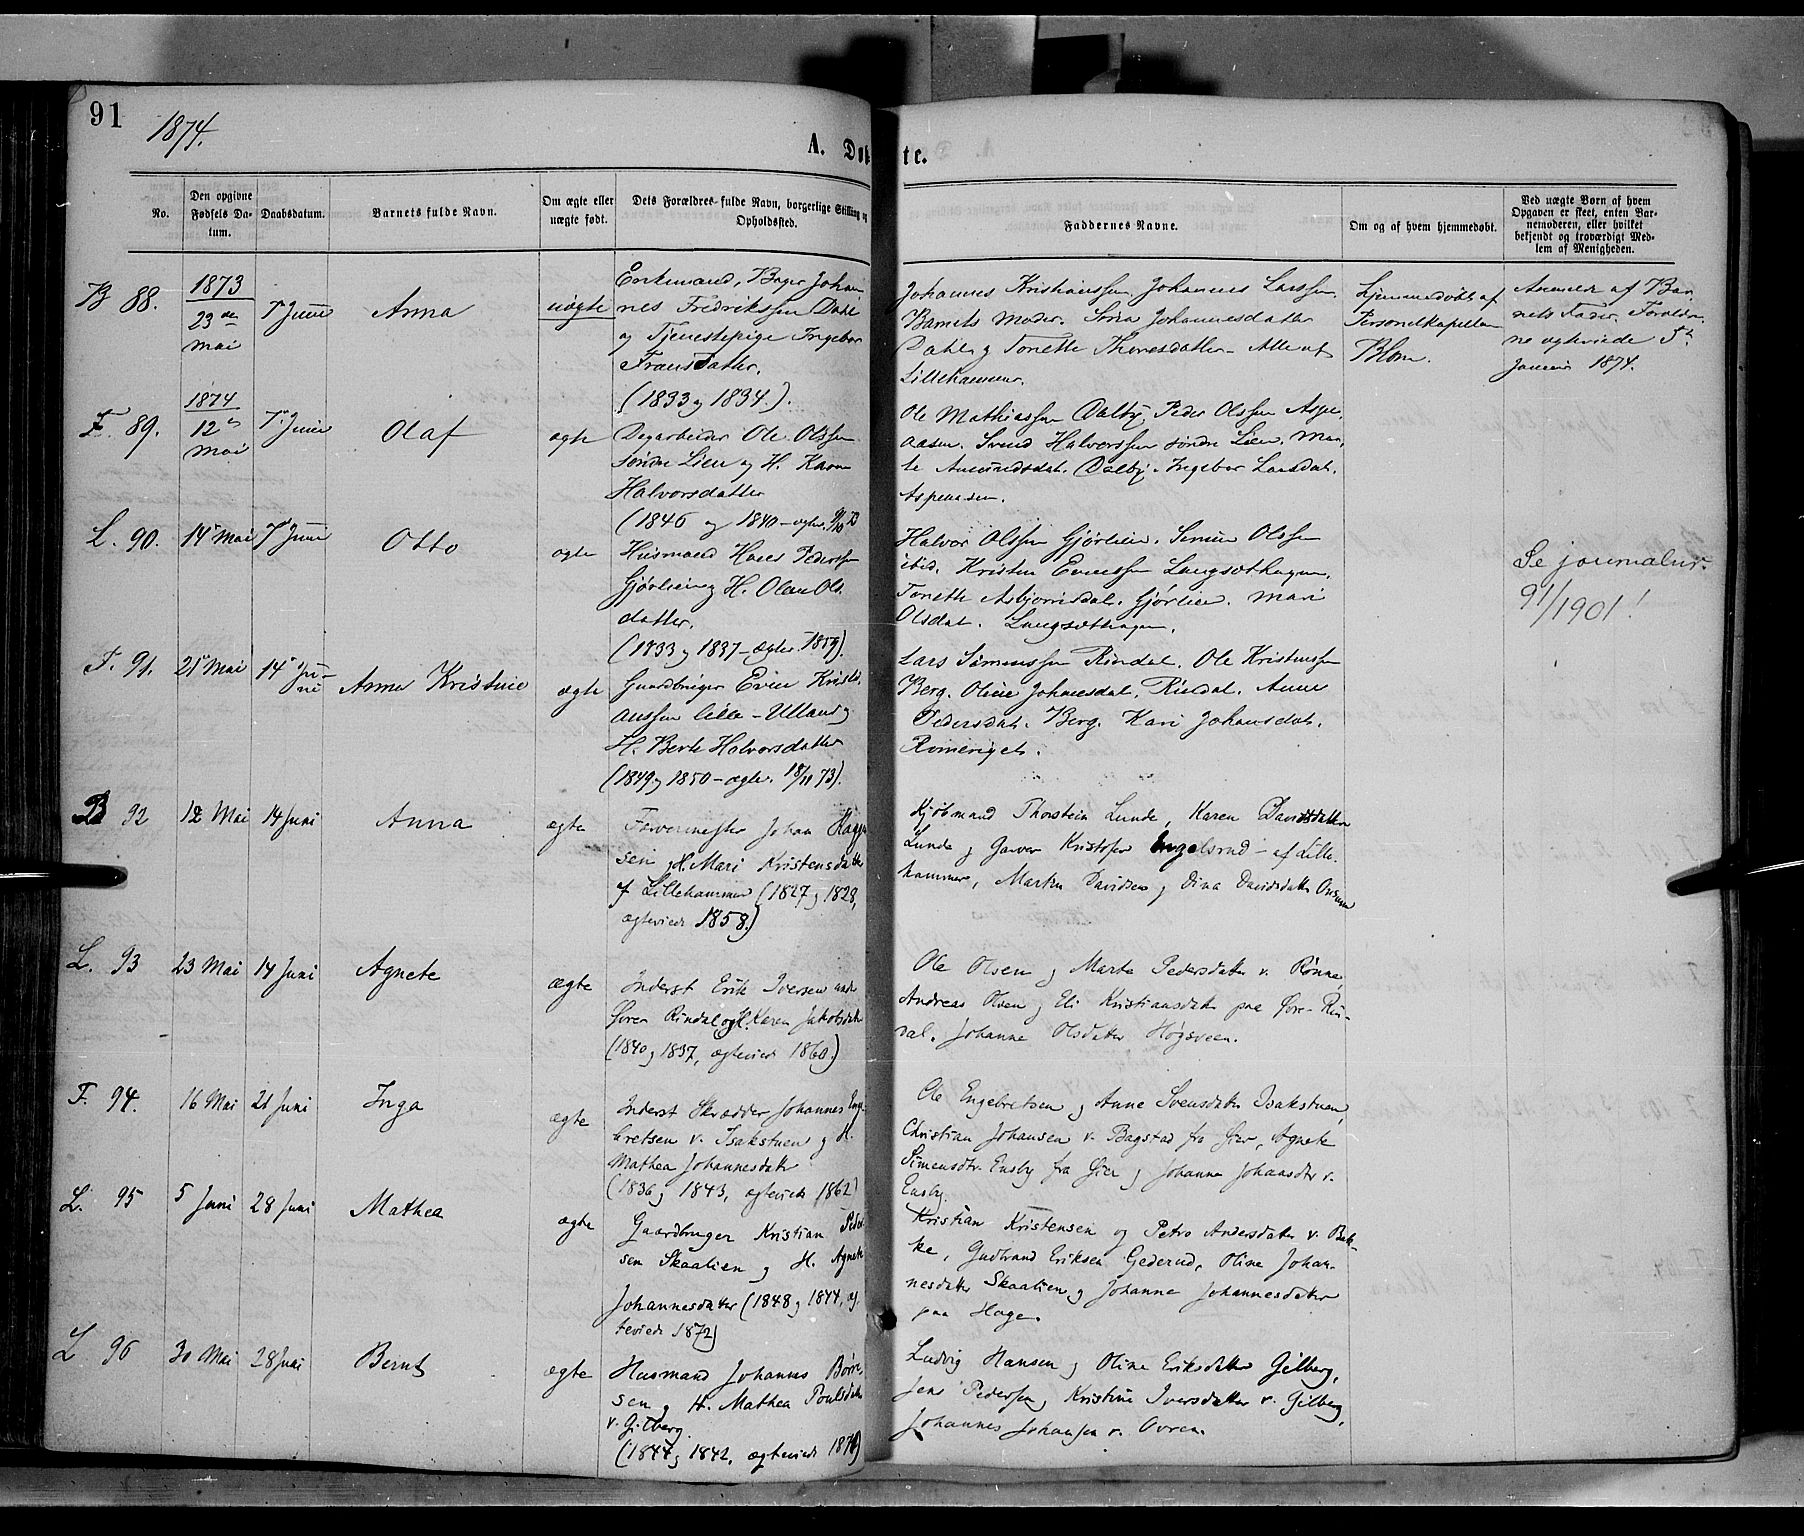 91
1874.
A. Døbte.
No.
Den opgivne Fødsels Da-
tum.
Daabsdatum.
Barnets fulde Navn.
Om ægte eller
uægte født.
Dets Forældres fulde Navn, borgerlige Stilling og
Opholdssted.
Faddernes Navne.
Om og af hvem hjemmedøbt.
Ved uægte Børn af hvem
Opgaven er skeet, enten Bar-
nemoderen, eller hvilket
bekjendt og troværdigt Med-
lem af Menigheden.
B 88.
1873
23de
Mai
7 Juni
Anna
uægte
Enkemand, Bager Johan
nes Frederikssen Dahl
og Tjenestepige Ingebor
Fransdatter.
(1833 og 1834.).
Johannes Kristianssen, Johannes Larssen.
Barnets Moder. Sina Johannesdatter
Dahl og Tonette Thoresdatter - Alle af
Lillehammer.
Hjemmedøbt af
Personelkapellan
Blom.
af Bar
nets Fader. Foreldre
ne egteviede 5te
Januar 1874.
F. 89.
1874
12te
Mai
7 Juni
Olaf
ægte
Dagarbeider Ole Olssen
søndre Lien og H. Karen
Halvorsdatter
(1846 og 1840 - egtev. 9/10 73
Ole Mathiassen Dalby, Peder Olssen Aspe
aasen. Svend Halvorssen søndre Lien. Mar
te Amundsdat. Dalby. Ingebor Larsdat.
Aspeaasen.
L. 90.
14 Mai
7 Juni
Otto
ægte
Husmand Hans Pederssen
Gjørlien og H. Olea Ols
datter.
(1833 og 1837 - egtev. 1859).
Halvor Olssen Gjørlien. Simen Olssen
ibid. Kristen Evenssen Langsæthagen.
Tonette Asbjørnsdat. Gjørlien. Mari
Olsdat. Langsæthagen.
Se journalnr.
91/1901!
F. 91.
21 Mai
14 Ju-
ni
Anna Kristine
ægte
Gaardbruger Even Kristi
anssen lille - Ulland og
H. Berte Halvorsdatter
(1849 og 1850 - egtev. 18/11 73).
Lars Simenssen Rindal. Ole Kristenssen
Berg. Oline Johannesdat. Rindal. Anne
Pedersdat. Berg. Kari Johansdat.
Romeriget.
B 92
12 Mai
14 Juni
Anna
ægte
Farvermester Johan
sen og H. Mari Kristensdatter
af Lillehammer (1827 og 1828,
egteviede 1858.)
Kjøbmand Thorstein Lunde, Karen Davidsdatter
Lunde og Garver Kristofer Engelsrud - af Lille-
hammer, Martin Davidsen og Dina Davidsdatter
L. 93
23 Mai
14 Juni
Agnete
ægte
Inderst Erik Iversen under
Øvre Rindal og H. Karen Jakobsdatter
(1840 og 1837, egteviede 1860.)
Ole Olsen og Marte Pedersdatter v. Rønne,
Andreas Olsen og Eli Kristiansdatter paa Øvre-Rin-
dal. Johanne Olsdatter Høgsveen.
F. 94.
16 Mai
21 Juni
Inga
ægte
Inderst Skrædder Johannes Enge
bretsen v. Isakstuen og H.
Mathea Johannesdatter
(1836 og 1843, egteviede 1862)
Ole Engebretsen og Anne Svensdatter Isakstuen,
Christian Johansen v. Bagstad fra Øier, Agnete
Simensdtr. Ensby fra Øier og Johanne Johansdtr v.
Ensby.
L. 95
5 Juni
28 Juni
Mathea
ægte
Gaardbruger Kristian Peder
sen Skaalien og H. Agnete
Johannesdatter (1848 og 1844, eg-
teviede 1872)
Kristian Kristensen og Petra Andersdatter v. Bak-
ke, Gudbrand Eriksen Gederud, Oline Johan-
nesdatter Skaalien og Johanne Johannesdatter
paa Hage.
L 96
30 Mai
28 Juni
Bernt
ægte
Husmand Johannes Børre
sen og H. Mathea Poulsdatter
v. Gilberg.
(1844 og 1842, egteviede 1870)
Ludvig Hansen og Oline Eriksdatter Gilberg,
Jens Pedersen, Kristine Iversdatter v. Gilberg,
Johannes Johansen v. Ovren.